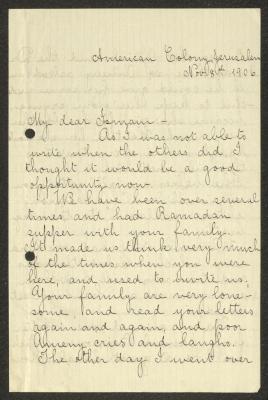 American Colony, Jerusalem
Nov. 8th 1906.
My dear Ismain -
As I was not able to
write when the others did I
thought it would be a good
opportunity now.
We have been over several
times and had Ramadan
supper with your family.
It made us think very much
of the times when you were
here, and used to invite us.
Your family are very lone-
some and read your letters
again and again, and poor
Ameny cries and laughs.
The other day I went over